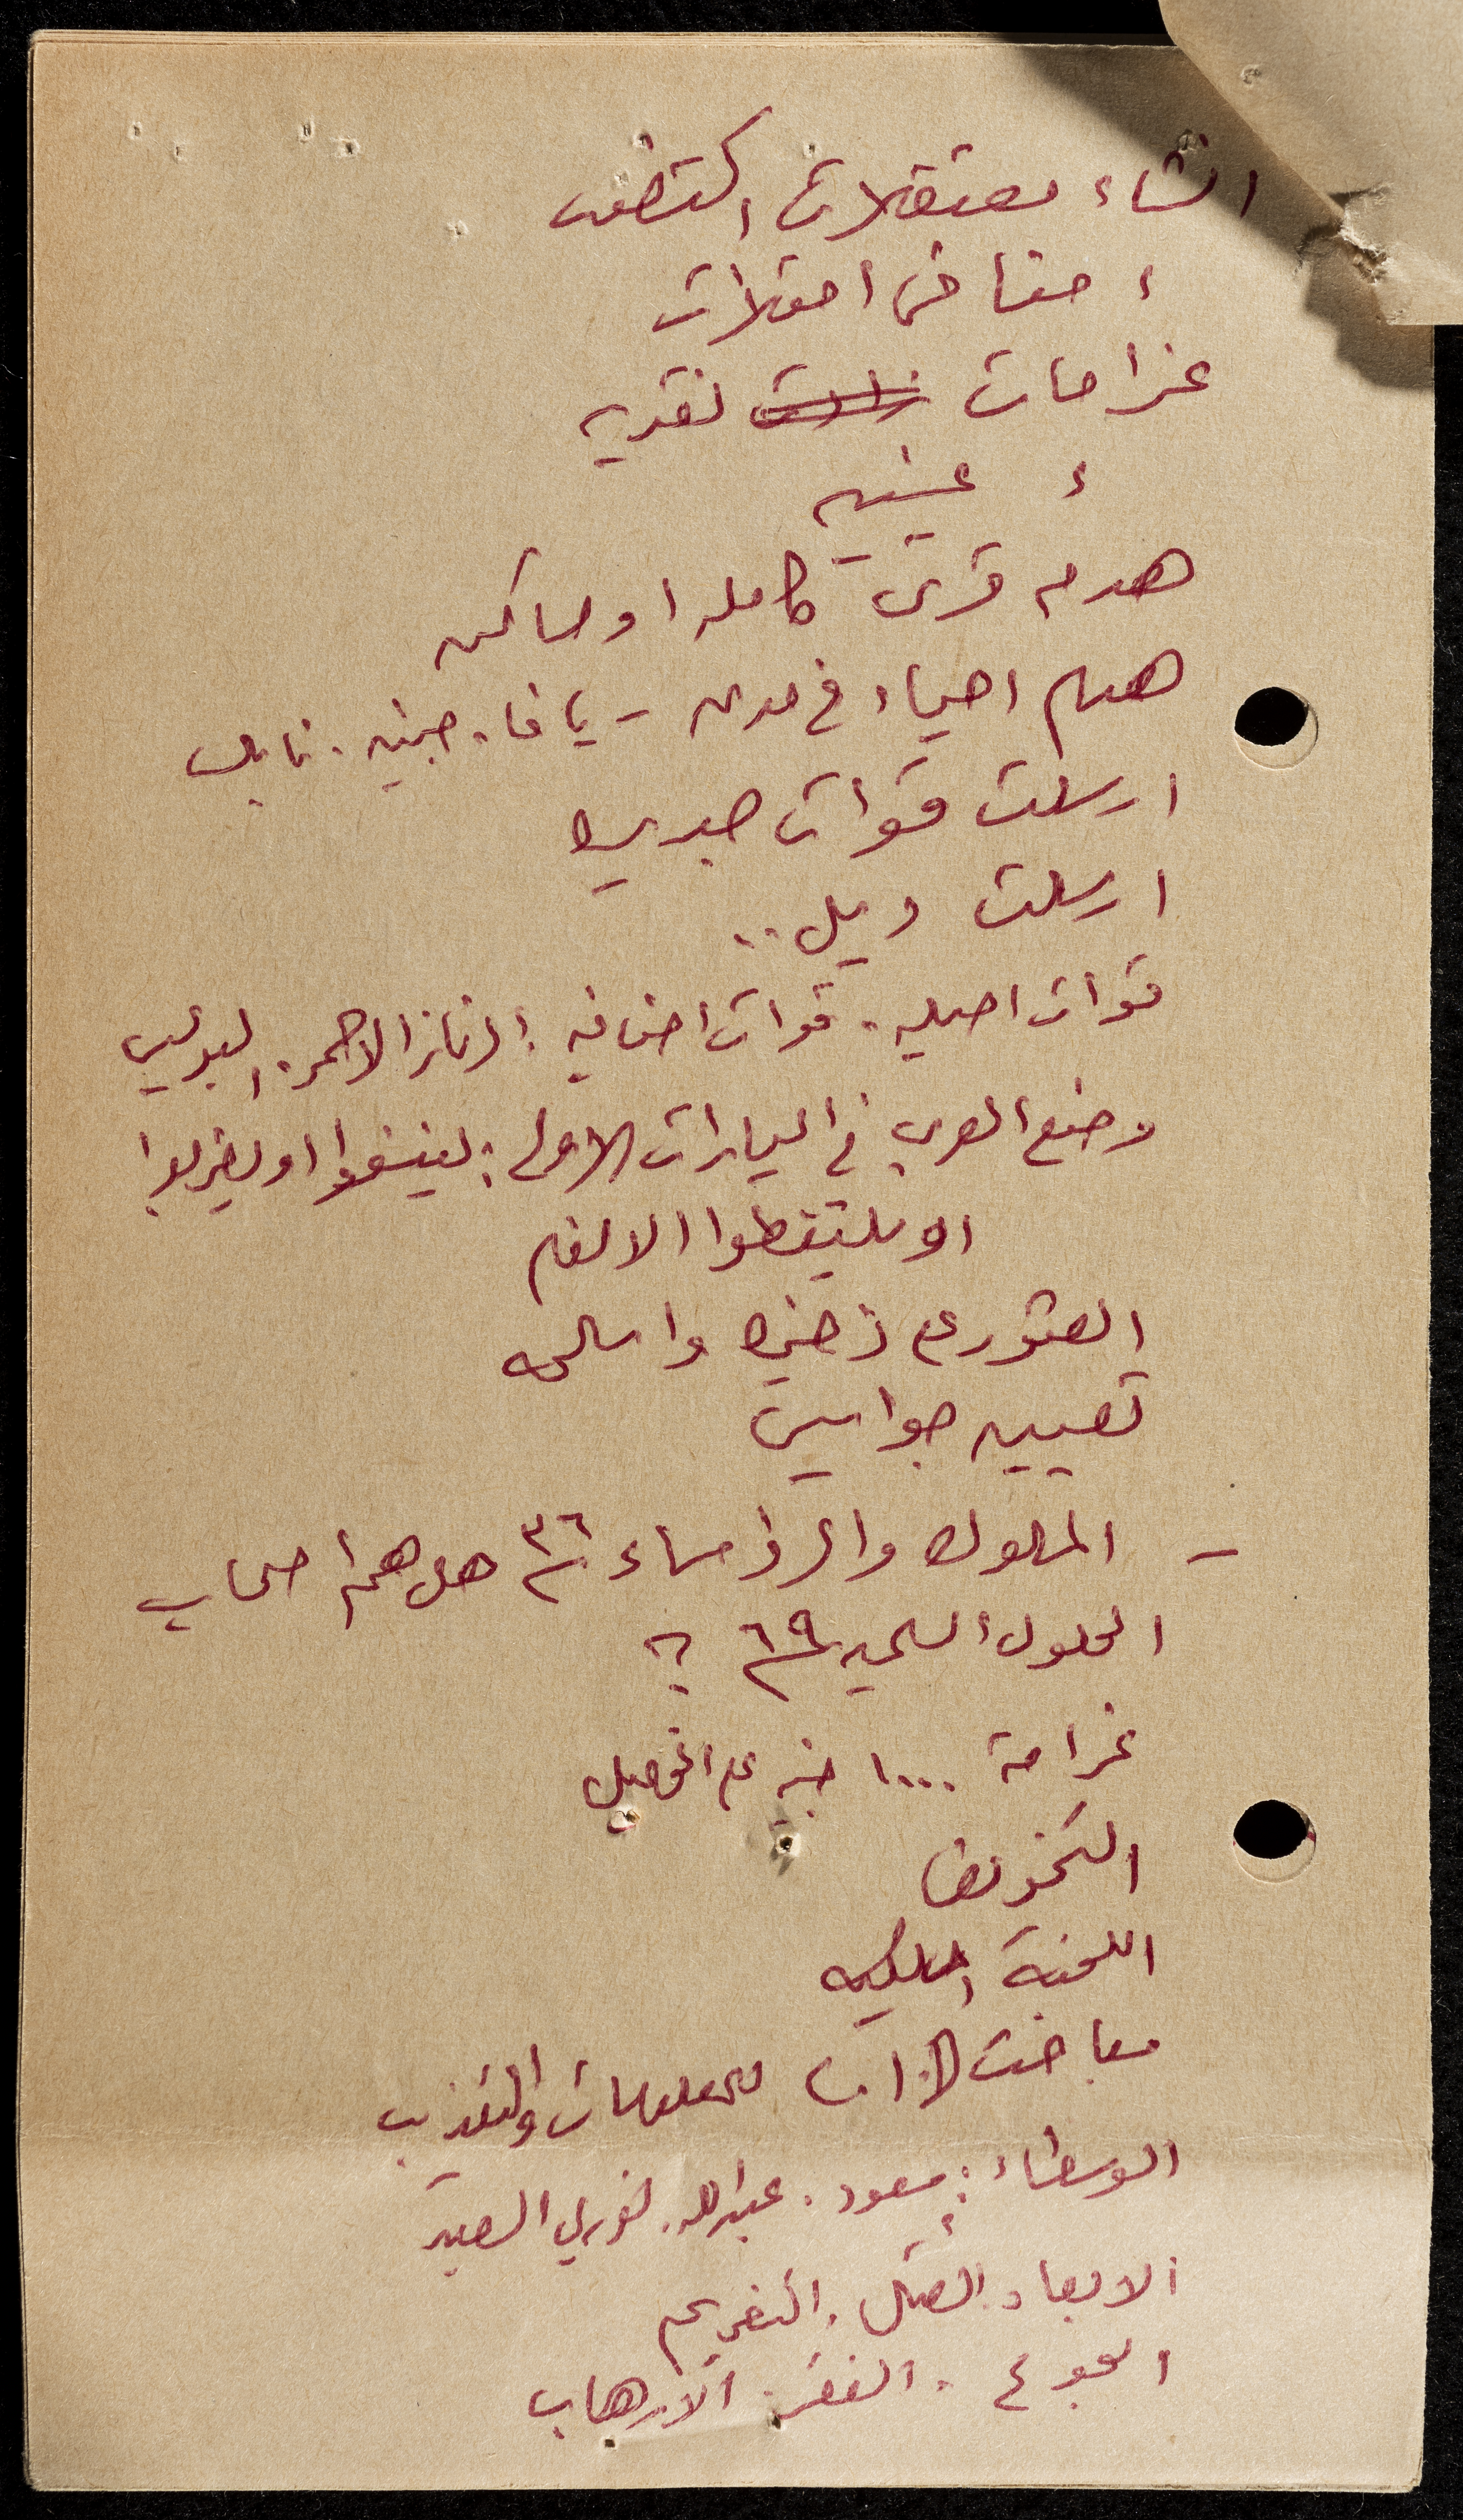 انشاء معتقلات اكتظت
، مناخ المعتقلات
غرامات نقديه
، عينيه
هدم قرى كامله او مساكن
هدم احياء في مدن - يافا. جنين. نابلس
ارسلت قوات جديده
ارسلت ديل..
قوات اصليه. قوات اضافيه: الزنار الاحمر. البوليس
وضع العرب في السيارات الاولى: لينسفوا او ليضربوا
او ليلتقطوا الالغام
العثور على ذخيره واسلحه
تعيين جواسيس
- الملوك والرؤساء ٣٦ هل هم اصحاب
الحلول السلميه ٦٩ ؟
غرامة ١٠٠٠ جنيه على
التخويف
اللجنة الملكيه
للمعلومات والتعذيب
الوسطاء: سعود. عبدالله. نوري السعيد
الابعاد. القتل. التغريم
الجوع. الفقر. الارهاب